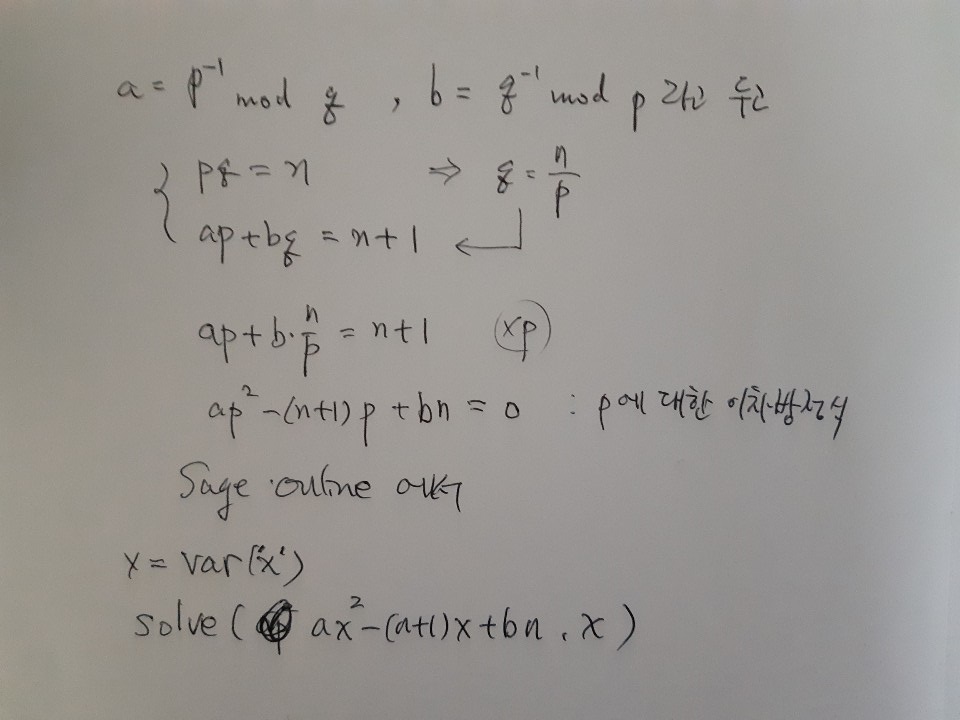 a = p⁻¹ mod q , b = q⁻¹ mod p 라고 두고
{ pq = n ⇒ q = n/p
ap + bq = n+1 ←
ap + b·n/p = n+1 (×p)
ap² - (n+1)p + bn = 0 : p에 대한 이차방정식
Sage online 에서
x = var('x')
solve ( ax² - (n+1)x + bn , x )